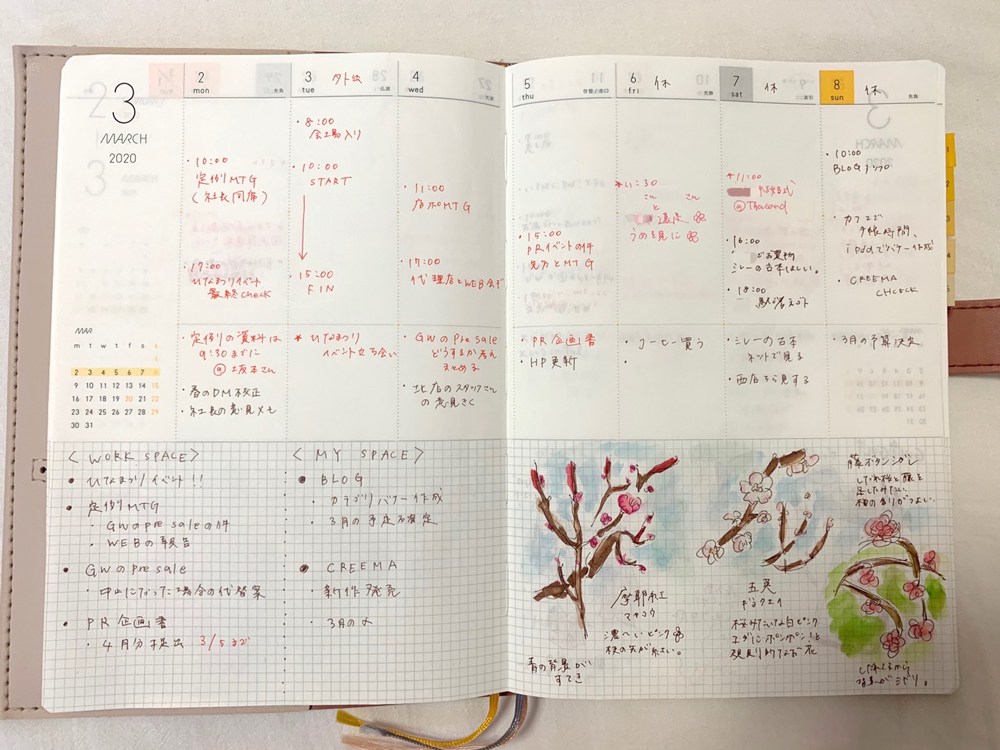 3
MARCH
2020
2
mon
10:00
定例MTG
(社長同席)
17:00
ひなまつりイベント
最終check
定例の資料は
9:30までに
・春のDM校正
・社長の意見メモ
3
tue
外出
・8:00
会場入り
・10:00
START
15:00
FIN
* ひなまつり
イベント立ち会い
4
wed
・11:00
店ホMTG
・17:00
代理店とWEB会ギ
GWのpre sale
どうするか考え
まとめる
・北店のスタッフさん
の意見きく
MAR
m t w t f s s
1
2 3 4 5 6 7 8
9 10 11 12 13 14 15
16 17 18 19 20 21 22
23 24 25 26 27 28 29
30 31
5
thu
・15:00
PRイベントの件
先方とMTG
・PR企画書
・HP更新
6
fri
休
*11:30
さん さん
と
うめを見に
・コーヒー買う
7
sat
休
*11:00
@Thousand
・16:00
お買物
ミレーの古本ほしい。
・18:00
・ミレーの古本
ネットで見る
8
sun
休
・10:00
BLOGアップ
・カフェで
手帳時間、
ipadでバナー作成
・CREEMA
CHECK
・3月の予算決定
〈WORK SPACE〉
● ひなまつりイベント!!
● 定例MTG
・GWのpre saleの件
・WEBの報告
● GWのpre sale
・中止になった場合の代替案
● PR企画書
・4月分提出 3/5まで
〈MY SPACE〉
● BLOG
・カテゴリバナー作成
・3月の予定を確定
● CREEMA
・新作発売
・3月の
青の背景が
すてき
摩耶紅
マヤコウ
濃〜いピンク
枝の先が紅い。
五英
桜みたいな白ピンク
エダにポンポン!と
規則的なお花
藤ボタンシダレ
しだれ桜と藤を
足したみたい。
桜の香りがつよい。